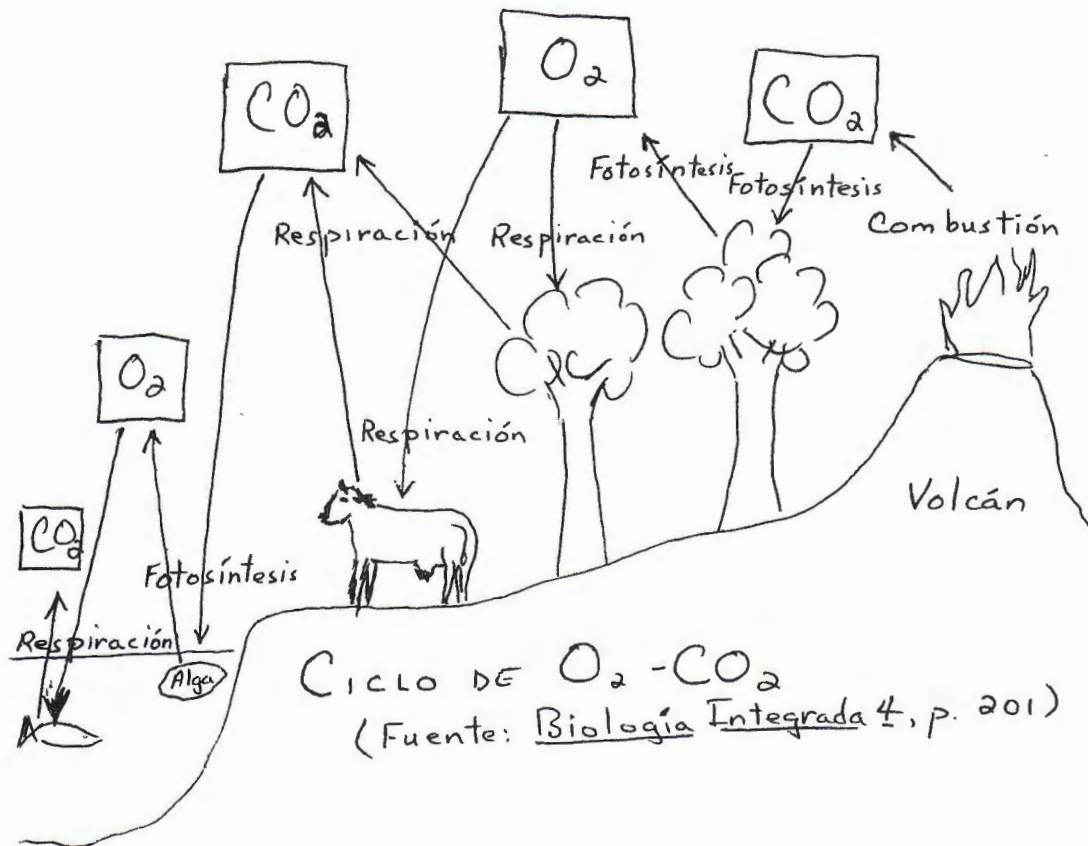 O₂
CO₂
CO₂
Fotosíntesis
Fotosíntesis
Combustión
Respiración
Respiración
O₂
Respiración
Volcán
CO₂
Fotosíntesis
Respiración
Alga
CICLO DE O₂-CO₂
(Fuente: Biología Integrada 4, p. 201)